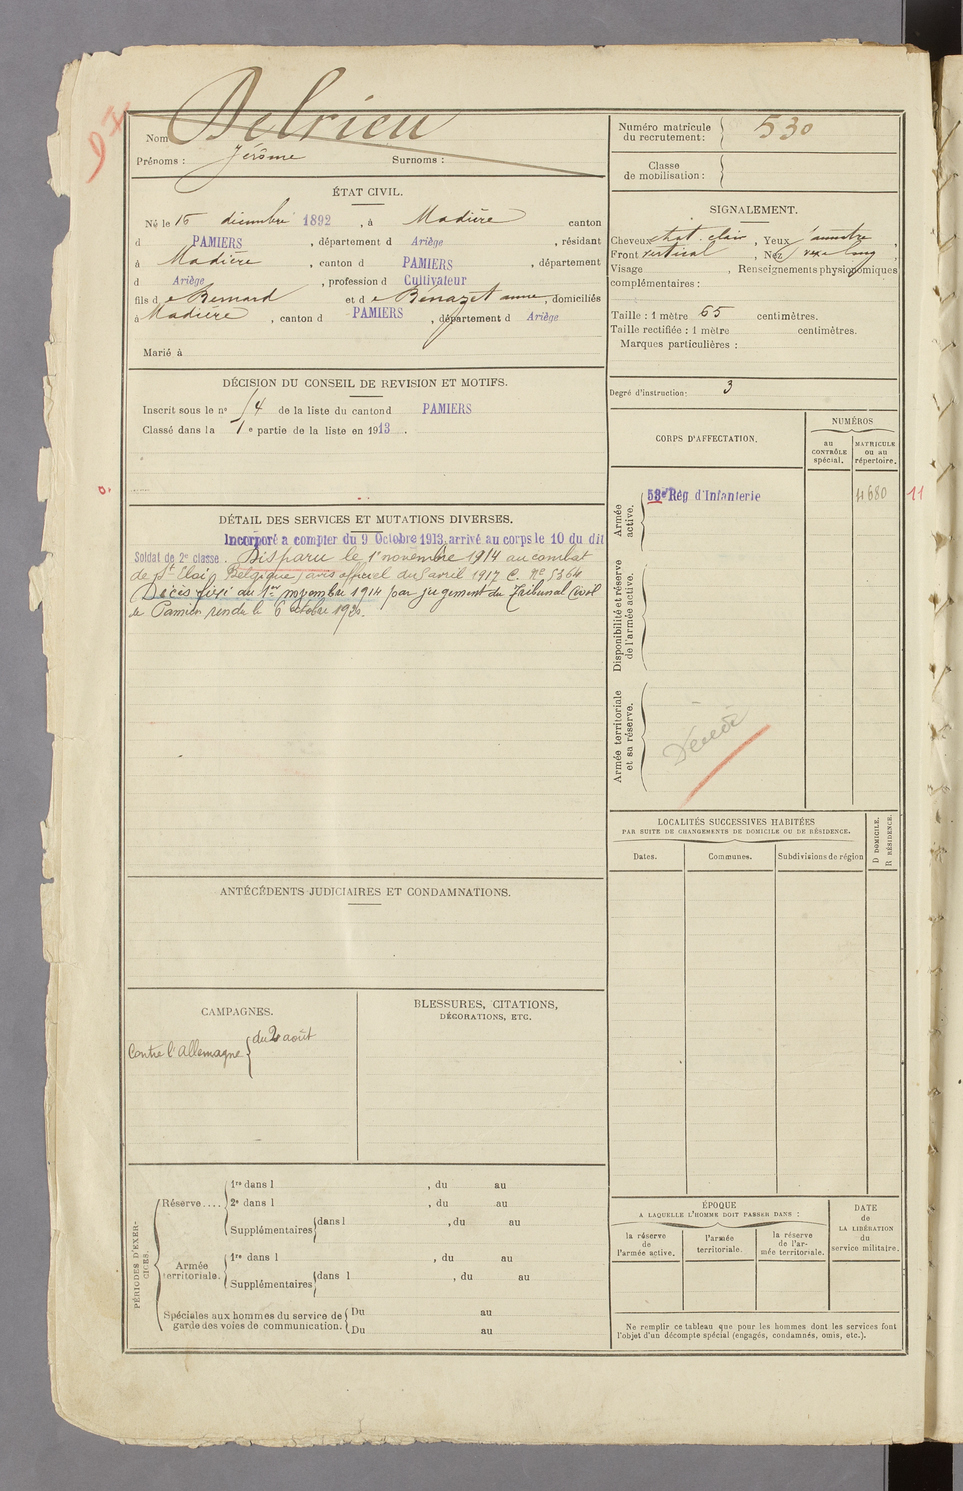 Nom Delrieu
Prénoms : Jérôme Surnoms :
ÉTAT CIVIL.
Né le 15 décembre 1892 , à Madière canton
d PAMIERS , département d Ariège , résidant
à Madière , canton d PAMIERS , département
d Ariège , profession d Cultivateur
fils de Bernard et de Bénazet anne , domiciliés
à Madière , canton d PAMIERS , département d Ariège
Marié à
DÉCISION DU CONSEIL DE REVISION ET MOTIFS.
Inscrit sous le nº 14 de la liste du canton d PAMIERS
Classé dans la 1e partie de la liste en 1913 .
DÉTAIL DES SERVICES ET MUTATIONS DIVERSES.
Incorporé a compter du 9 Octobre 1913, arrivé au corps le 10 du dit
Soldat de 2e classe. Disparu le 1er novembre 1914 au combat
de St Eloi (Belgique) avis officiel du avril 1917 C. Ne 5364
Décès fixé au 1er novembre 1914 par jugement du Tribunal Civil
de Pamiers rendu le 6 octobre 1920.
ANTÉCÉDENTS JUDICIAIRES ET CONDAMNATIONS.
CAMPAGNES.
Contre l'Allemagne du 2 août
BLESSURES, CITATIONS,
DÉCORATIONS, ETC.
PÉRIODES D'EXER-
CICES.
Réserve....
1re dans l , du au
2e dans l , du au
Supplémentaires dans l , du au
Armée
territoriale.
1re dans l , du au
Supplémentaires dans l , du au
Spéciales aux hommes du service de
garde des voies de communication.
Du au
Du au
Numéro matricule
du recrutement : 530
Classe
de mobilisation :
SIGNALEMENT.
Cheveux chat. clair , Yeux ,
Front vertical , Nez long ,
Visage , Renseignements physionomiques
complémentaires :
Taille : 1 mètre 65 centimètres.
Taille rectifiée : 1 mètre centimètres.
Marques particulières :
Degré d'instruction: 3
CORPS D'AFFECTATION.
NUMÉROS
au
CONTRÔLE
spécial.
MATRICULE
ou au
répertoire.
Armée
active.
53e Rég d'Infanterie 4680 11
Disponibilité et réserve
de l'armée active.
Armée territoriale
et sa réserve.
Décédé
LOCALITÉS SUCCESSIVES HABITÉES
PAR SUITE DE CHANGEMENTS DE DOMICILE OU DE RÉSIDENCE.
D DOMICILE.
R RÉSIDENCE.
Dates. Communes. Subdivisions de région
ÉPOQUE
A LAQUELLE L'HOMME DOIT PASSER DANS :
la réserve
de
l'armée active.
l'armée
territoriale.
la réserve
de l'ar-
mée territoriale.
DATE
de
LA LIBÉRATION
du
service militaire.
Ne remplir ce tableau que pour les hommes dont les services font
l'objet d'un décompte spécial (engagés, condamnés, omis, etc.).